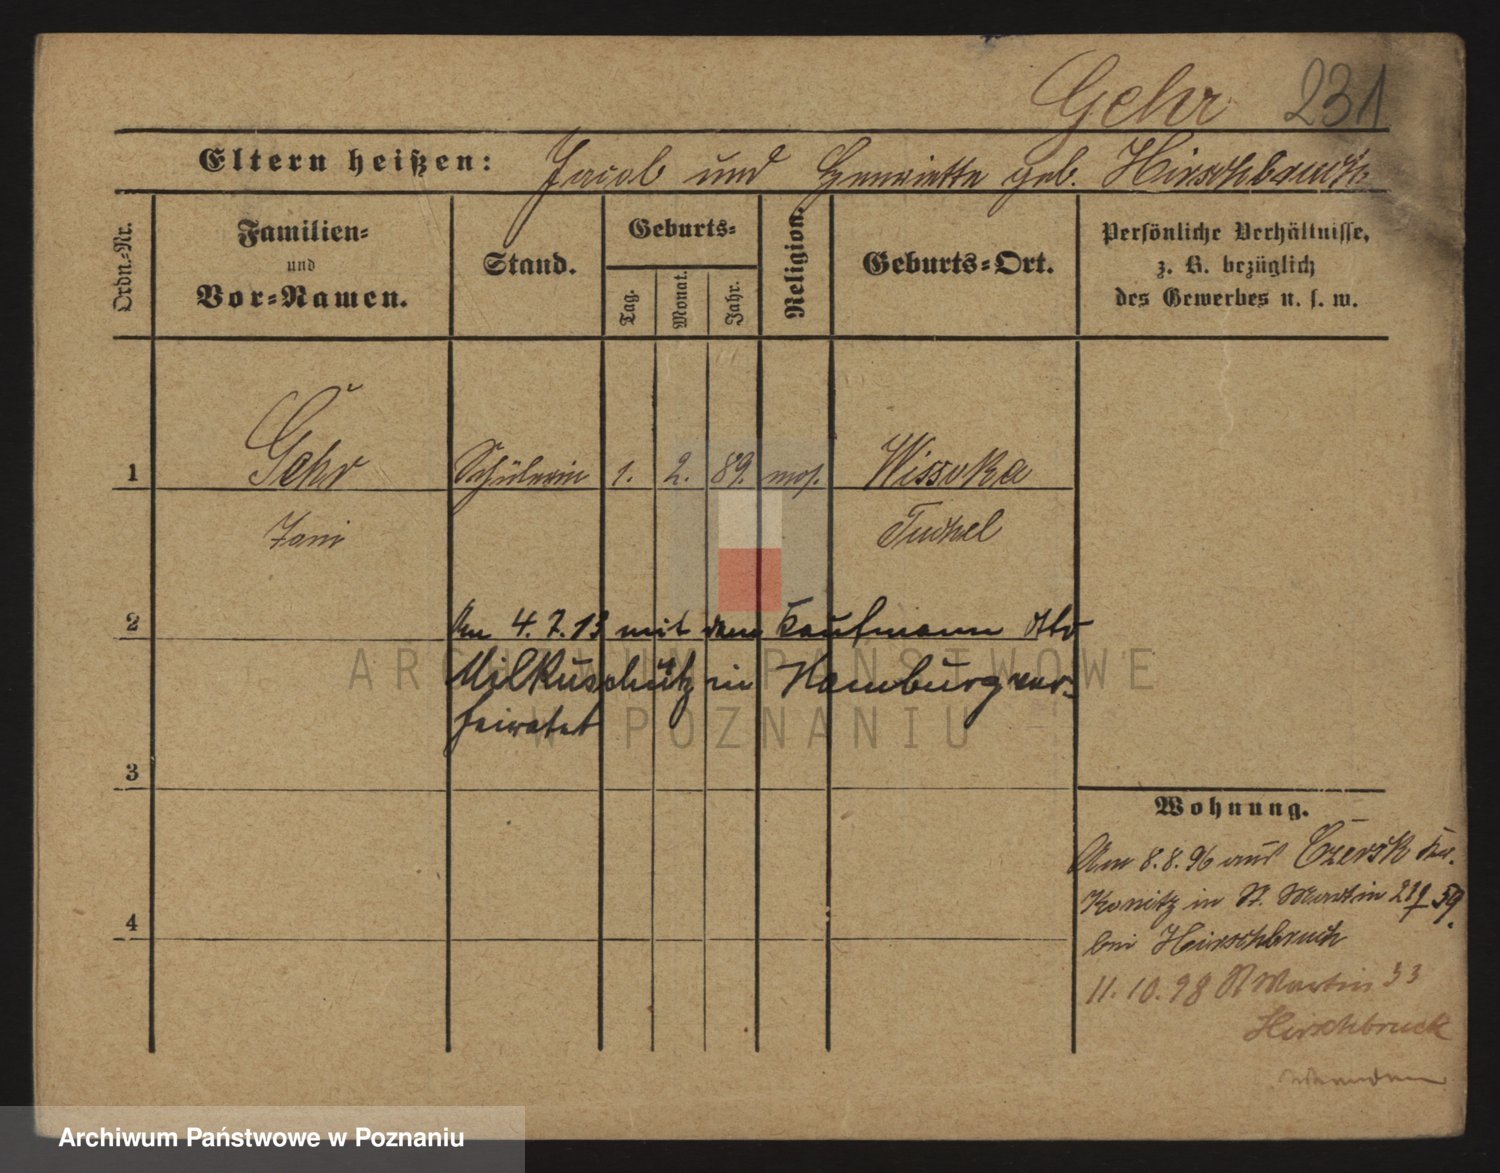 Gehr 231
Eltern heißen: Jacob und Henriette geb. Hirschbruch
Ordn.-Nr.
Familien-
und
Vor-Namen.
Stand.
Geburts-
Tag.
Monat.
Jahr.
Religion.
Geburts-Ort.
Persönliche Verhältnisse,
z. B. bezüglich
des Gewerbes u. s. w.
1 Gehr Schülerin 1. 2. 89. mos. Wissoka
Fani Tuchel
2 Am 4.7.13 mit dem Kaufmann Otto
Milkuschütz in Hamburg ver-
heiratet
3
Wohnung.
Am 8.8.96 aus Czersk Kr.
Konitz in St. Martin 59.
4
bei Hirschbruch
11.10.98 St Martin 33
Hirschbruch
ARCHIWUM PAŃSTWOWE
W POZNANIU
Archiwum Państwowe w Poznaniu